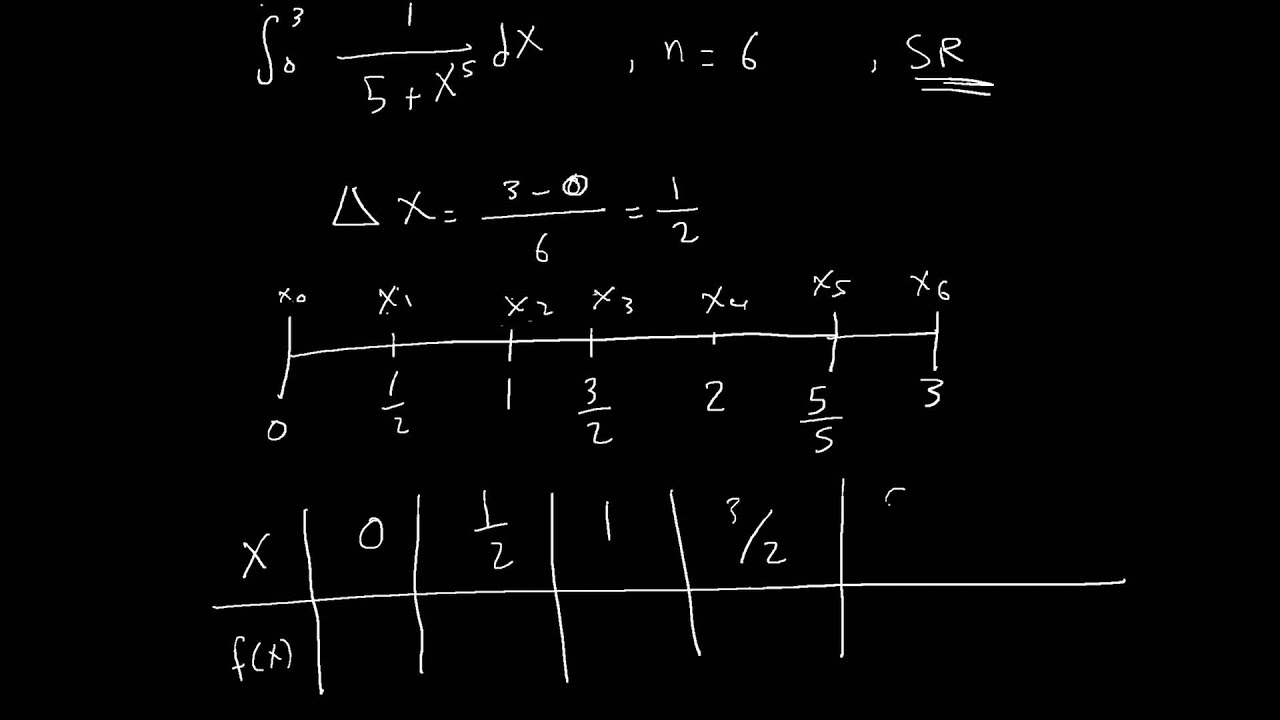 ∫₀³ 1/(5+x⁵) dx , n = 6 , SR
Δx = (3-0)/6 = 1/2
x₀ x₁ x₂ x₃ x₄ x₅ x₆
0 1/2 1 3/2 2 5/5 3
x 0 1/2 1 3/2
f(x)